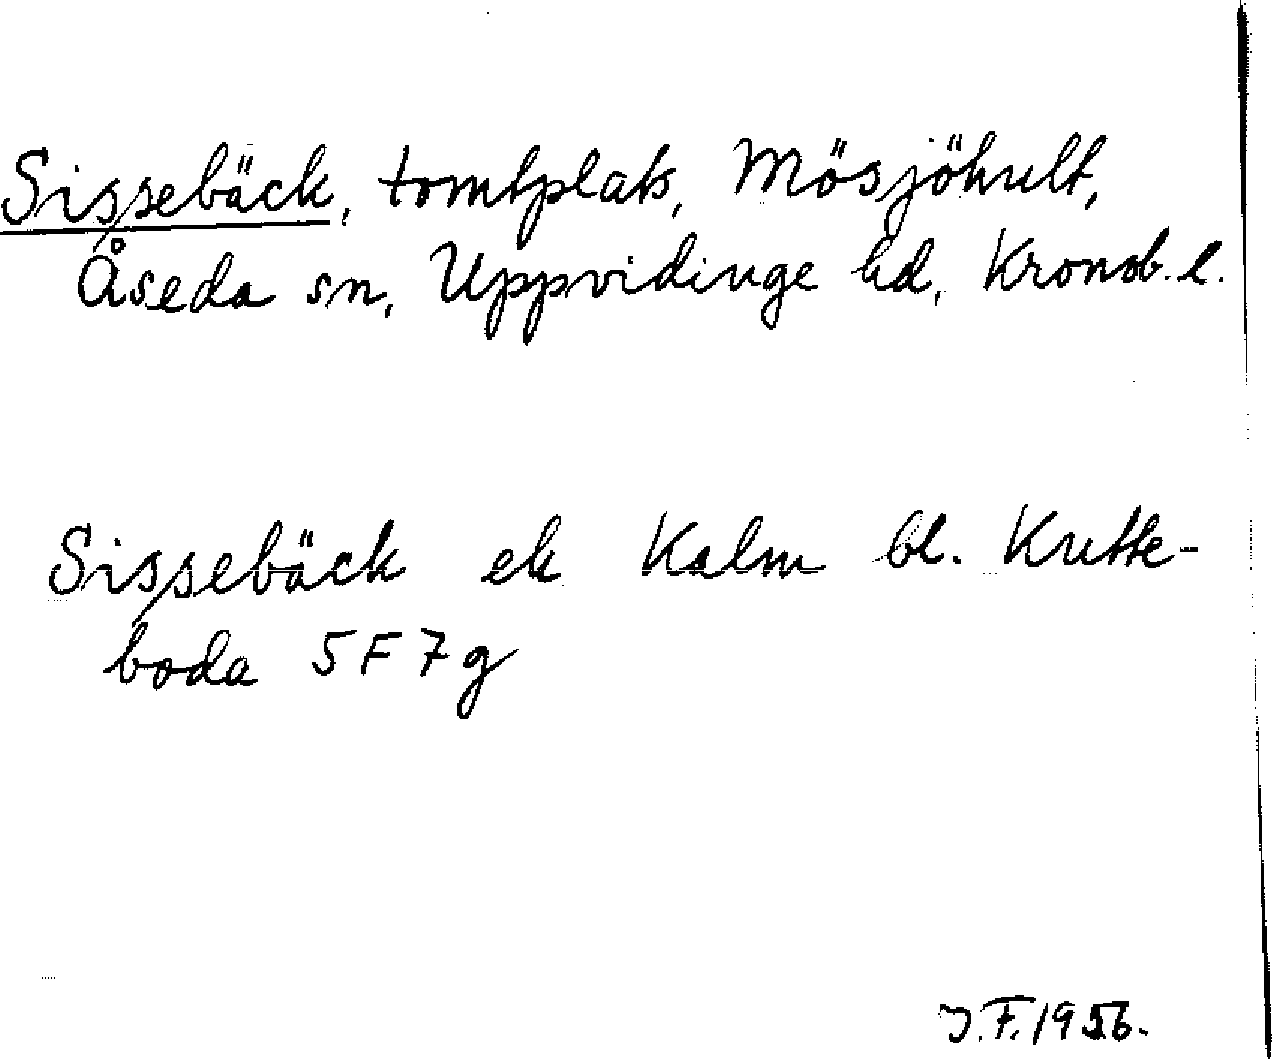 Sissebäck, tomtplats, Mösjöhult,
Åseda sn, Uppvidinge hd, Kronob. l.
Sissebäck ek Kalm bl. Krutte-
boda 5 F 7 g
J. F. 1956.